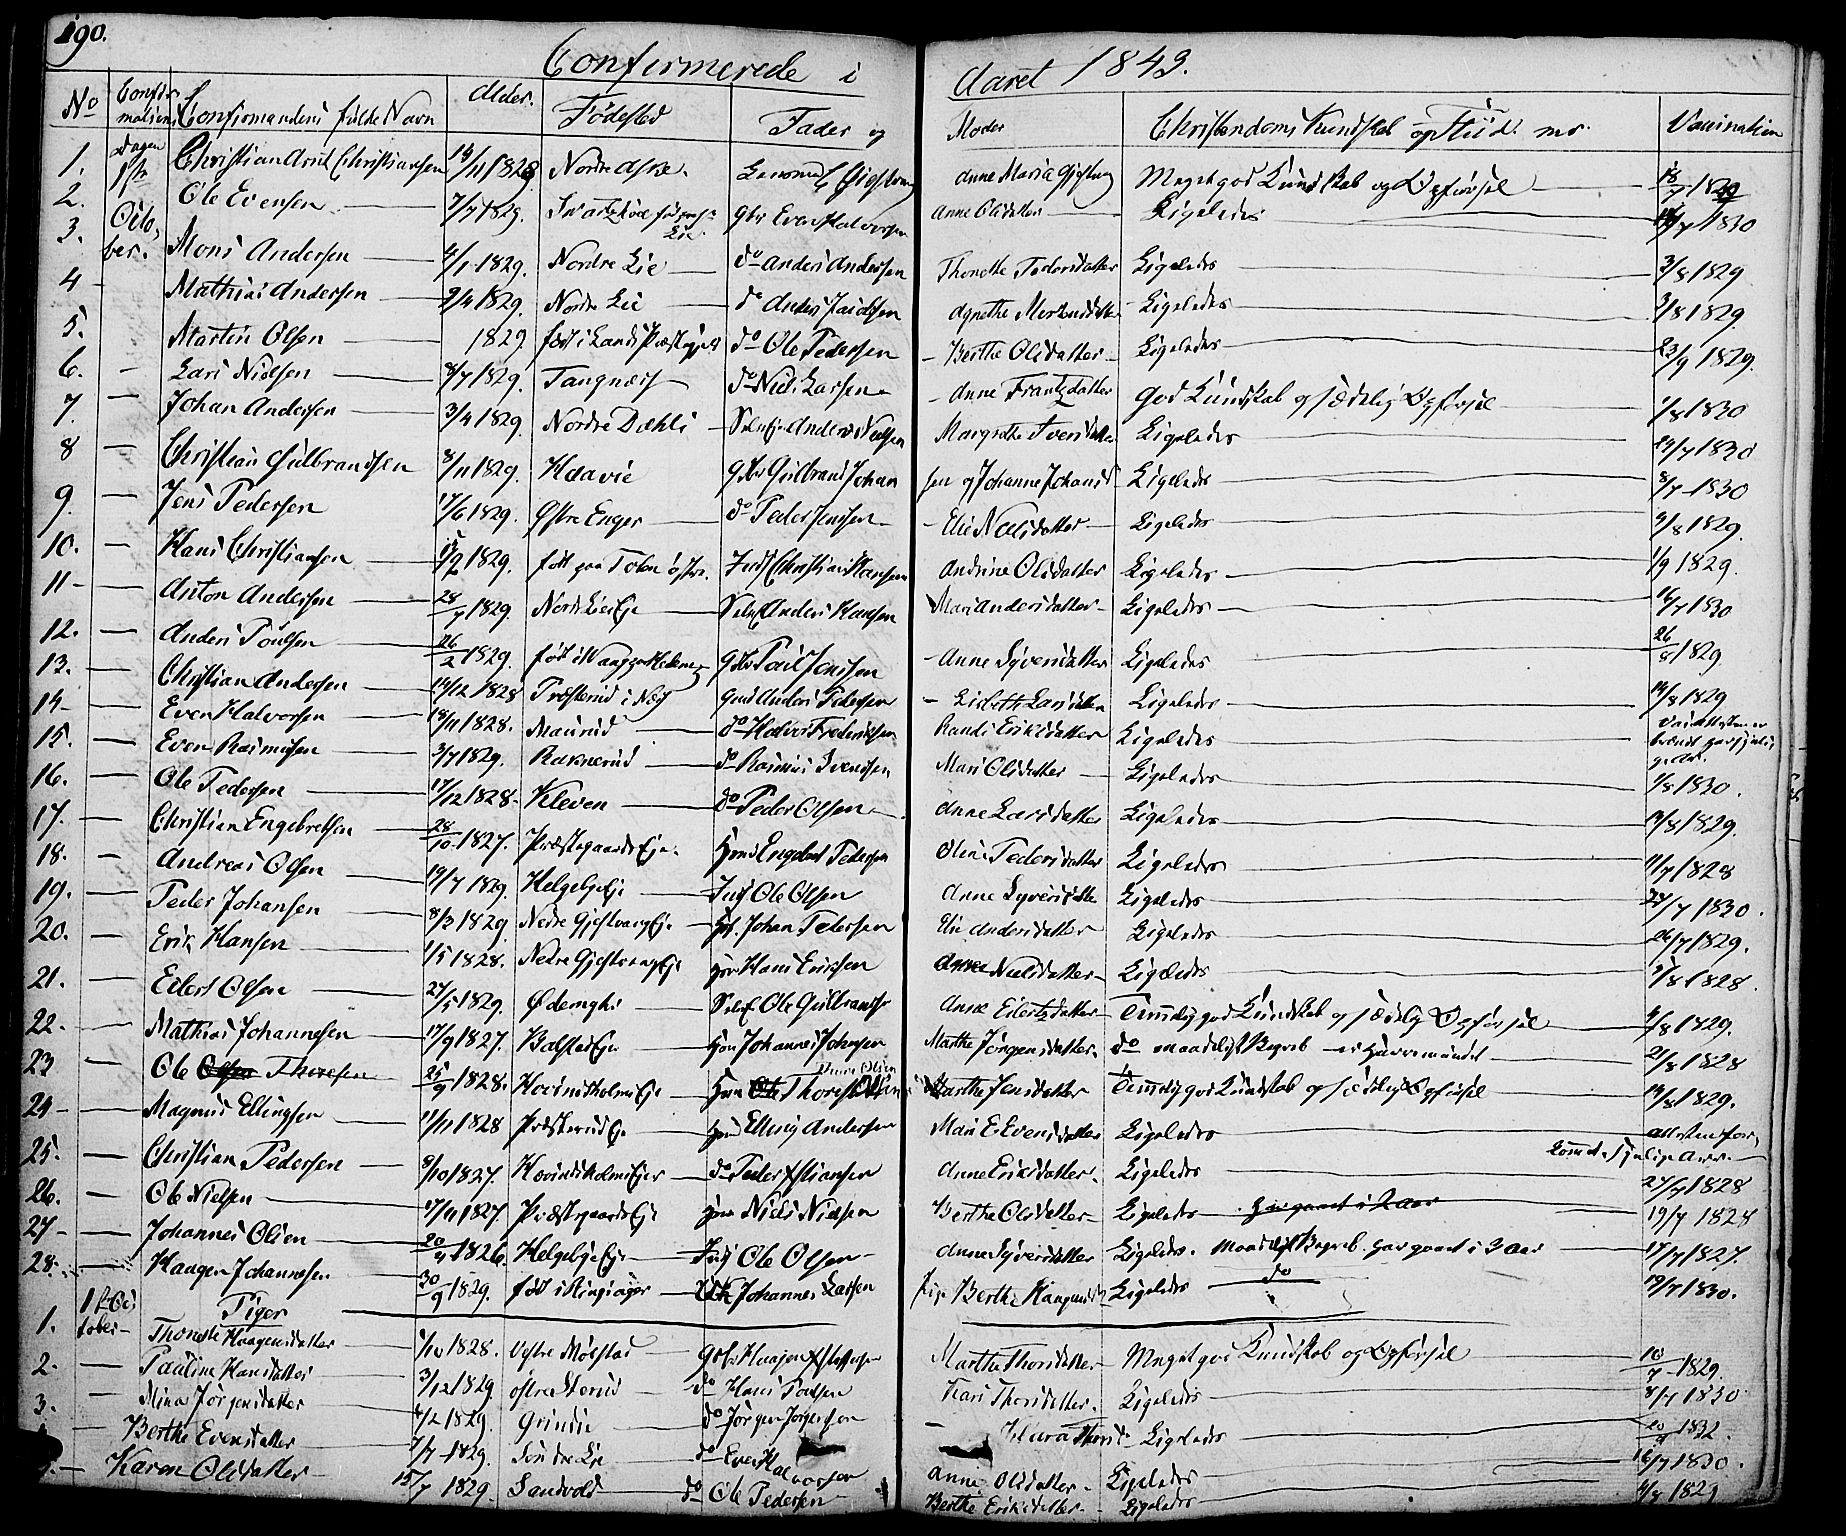 190.
Confirmerede i Aaret 1843.
No Confirmations Dagen Confirmandens fulde Navn Alder. Fødested Fader og Moder Christendoms Kundskab og Flid mv. Vaccination
1. 1ste Octo- Christian Arnt Christiansen 1828 Nordre Anne Maria Meget god Kundskab og Opførsel 18/7 1829
2. Ole Evensen 7/7 1829. Even Halvorsen Anne Olsdatter Ligeledes 1830
3. ber. Mons Andersen 4/1 1829. Nordre Lie do Anders Andersen Thonette Pedersdatter Ligeledes 3/8 1829
4 Mathias Andersen 2/4 1829. Nordre Lie do Anders Agnethe Ligeledes 3/8 1829
5. Martin Olsen 1829 født i Lands Præstegjeld do Ole Pedersen Berthe Olsdatter Ligeledes 23/9 1829.
6. Lars Nielsen 8/7 1829. Tangnæs do Niels Larsen Anne Frantzdatter god Kundskab og sædelig Opførsel 1/8 1830
7 Johan Andersen 3/4 1829. Nordre Dæhli Anders Nielsen Margrethe Iversdatter Ligeledes 1830
8 Christian Gulbrandsen 8/11 1829. Haavie Gbr Gulbrand Johansen og Johanne Johansd Ligeledes 8/7 1830
9. Jens Pedersen 17/6 1829. Østre Enger do Peder Jensen Elie Nielsdatter Ligeledes 9/8 1829.
10. Hans Christiansen 1829. født paa Toten østre. Inds Christian Hansen Andrine Olsdatter Ligeledes 1/9 1829.
11 Anton Andersen 28/7 1829. Nordr Lie Eje Anders Hansen Mari Andersdatter Ligeledes 16/7 1830
12. Anders Poulsen 26/2 1829. født i Vang Hedemg Gbr Poul Jensen Anne Syversdatter Ligeledes 26/8 1829
13. Christian Andersen 14/12 1828 Præsterud i Næs Anders Pedersen Lisbeth Larsdatter Ligeledes 14/8 1829
14 Even Halvorsen 18/11 1828. Maurud do Halvor Frederiksen Randi Eriksdatter Ligeledes
15. Even Rasmussen 3/7 1829. Raknerud do Rasmus Svendsen Mari Olsdatter Ligeledes 1/8 1830.
16. Ole Pedersen 17/12 1828. Kleven do Peder Olsen Anne Larsdatter Ligeledes 1829.
17. Christian Engebretsen 28/10 1827. Præstegaards Eje. Engebret Pedersen Oline Pedersdatter Ligeledes 11/7 1828
18. Andreas Olsen 19/7 1829. Helgeby Eje Inds Ole Olsen Anne Syversdatter Ligeledes 24/7 1830.
19. Peder Johansen 8/3 1829. Nedre Gjestvang Eje Johan Pedersen Elie Andersdatter Ligeledes 26/7 1829.
20. Erik Hansen 1/5 1828. Nedre Gjestvang Eje Hans Eriksen Anne Nielsdatter Ligeledes 9/8 1828.
21. Eilert Olsen 27/5 1829. Ødemgde Ole Gulbrands Anne Eilertsdatter Temmelig god Kundskab og sædelig Opførsel 9/8 1829.
22. Mathias Johannesen 17/9 1827. Balstad Eje Johannes Johnsen Marthe Jørgensdatter do maadeligt Begreb 21/8 1828
23 Ole Olsen Thoresen 25/9 1828. Hovindsholms Eje Ole Thoresen Marthe Jensdatter Temmelig god Kundskab og sædelig Opførsel 14/8 1829.
24 Magnus Ellingsen 11/11 1828 Præsterud Eje Elling Andersen Mari Evensdatter Ligeledes
25. Christian Pedersen 9/10 1827. Hovindsholms Ejer do Peder Xstiansen Anne Eriksdatter. Ligeledes 27/7 1828
26. Ole Nielsen 17/11 1827. Præstegaards Eje Niels Nielsen Berthe Olsdatter Ligeledes har gaaet i 2 aar 19/7 1828
27 Johannes Olsen 20/4 1826. Helgeby Eje Inds Ole Olsen Anne Syversdatter Ligeledes. Maadeligt Begreb. har gaaet i 3 Aar 17/7 1827.
28. Haagen Johannesen 30/9 1829. født i Ringsager Johannes Larsen Berthe Haagensd Ligeledes do 19/7 1830.
1 ste October Piger
1. Thonette Haagensdatter 1/10 1828. Vestre Mølstad Haagen Marthe Thorsdatter Meget god Kundskab og Opførsel 10/7 1829.
2. Pauline Hansdatter 3/12 1829 østre Sterud do Hans Poulsen Kari Thorsdatter. Ligeledes 8/7 1830
3. Mina Jørgensdatter 4/2 1829. Grindie do Jørgen Jørgensen Klara Thorsd Ligeledes 1832.
Berthe Evensdatter 7/7 1829. Søndre Lie do Even Halvorsen Anne Olsdatter. Ligeledes 16/7 1830.
Karen Olsdatter 15/7 1829. Sandvold do Ole Pedersen Berthe Eriksdatter. Ligeledes 4/8 1829